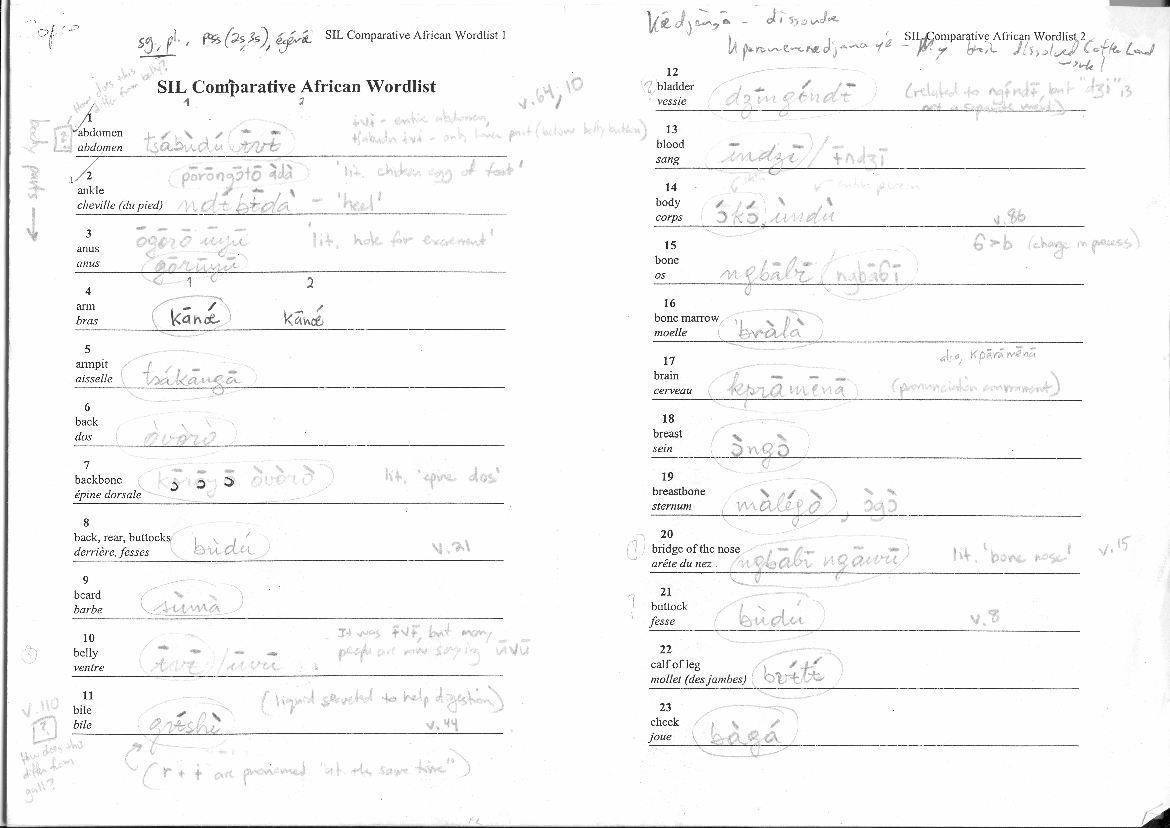 sg., pl., pss (2s, 3s),
SIL Comparative African Wordlist 1
SIL Comparative African Wordlist
1 2
v.64, 10
How does this differ from belly?
body parts →
1
abdomen
abdomen
tsábùdú ɨ̄vɨ̄
ɨvɨ - entire abdomen,
tsabudu ɨvɨ - only lower part (below belly button)
2
ankle
cheville (du pied)
pɔrɔngɔtɔ àdà 'lit. chicken egg of foot'
- 'heel'
3
anus
anus
ōgɔ̄rō ūyū 'lit. hole for excrement'
gōrūyū
1 2
4
arm
bras
kānɛ́ kānɛ́
5
armpit
aisselle
tsákāngā
6
back
dos
òvòrò
7
backbone
épine dorsale
òvòrò lit. 'epine dos'
8
back, rear, buttocks
derrière, fesses
bùdú v.21
9
beard
barbe
sùmà
10
belly
ventre
ɨ̄vɨ̄ / ūvū
It was ɨ̄vɨ̄, but many
people are now saying ūvū
11
bile
bile
grɨ́shì
(liquid secreted to help digestion)
v.44
v.110
?
How does this
differ from
gall?
(r + ɨ are pronounced "at the same time")
Kēdjāngā - dissoudre
SIL Comparative African Wordlist 2
12
bladder
vessie
dzīngɨ́ndɨ̄
(related to ngɨ́ndɨ̄, but "dzi" is
not a separate word)
13
blood
sang
īndzī / ɨ̄ndzī
14
body
corps
ɔ́kɔ́, ùndù
v.86
15
bone
os
ngbābī / ngbāɓī
ɓ > b (change in process)
16
bone marrow
moelle
bràlà
17
brain
cerveau
kprāmēnā
also, kpārāmēnā
(pronunciation environment)
18
breast
sein
ɔ̀ngɔ̀
19
breastbone
sternum
màlégò, ɔ̀gɔ̀
20
bridge of the nose
arête du nez
ngbābī ngāwū lit. 'bone nose' v.15
21
buttock
fesse
bùdú v.8
22
calf of leg
mollet (des jambes)
bvɨ́tɨ́
23
cheek
joue
bàgá